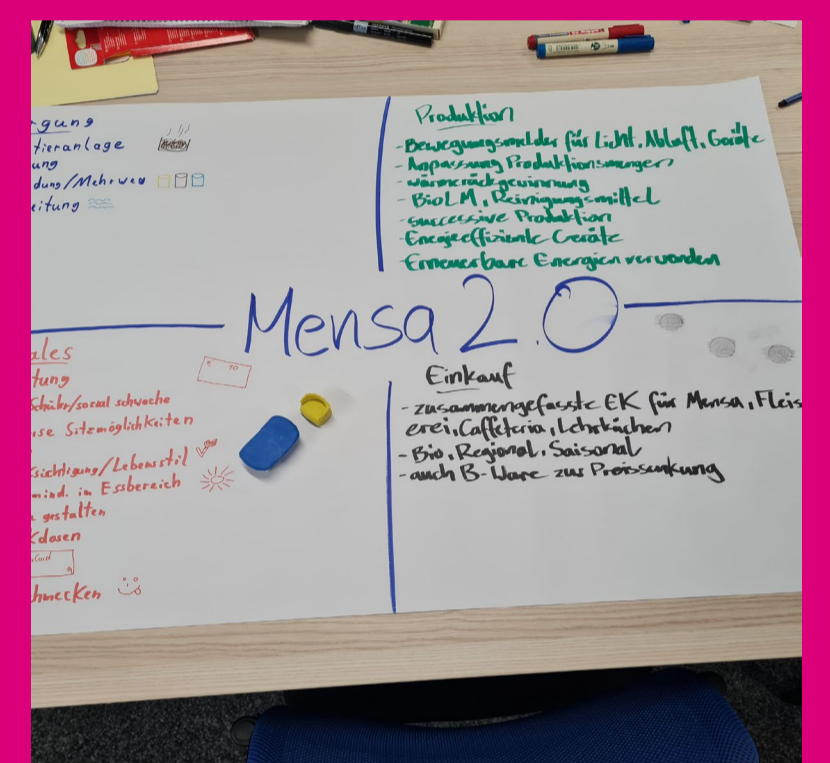 gung
tieranlage
ung
dung/Mehrweg
eitung
Produktion
- Bewegungsmelder für Licht, Abluft, Geräte
- Anpassung Produktionsmengen
- wärmerückgewinnung
- Bio LM, Reinigungsmittel
- successive Produktion
- Energieeffiziente Geräte
- Erneuerbare Energien verwenden
Mensa 2.0
ales
tung
Schüler/sozial schwache
se Sitzmöglichkeiten
ksichtigung/Lebensstil
mind. in Essbereich
gestalten
kdosen
hmecken
€ 10
Einkauf
- zusammengefasste EK für Mensa, Fleis
erei, Caffeteria, Lehrküchen
- Bio, Regional, Saisonal
- auch B-Ware zur Preissenkung